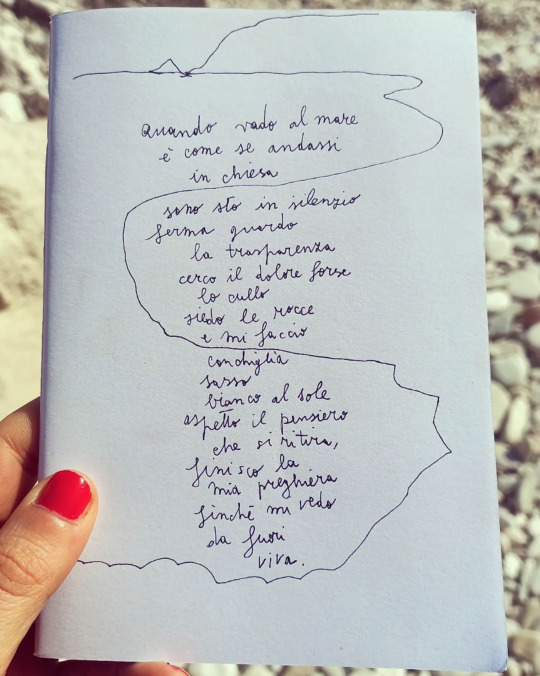 Quando vado al mare
è come se andassi
in chiesa
sono sto in silenzio
ferma guardo
la trasparenza
cerco il dolore forse
lo cullo
siedo le rocce
e mi faccio
conchiglia
sasso
bianco al sole
aspetto il pensiero
che si ritira,
finisco la
mia preghiera
finché mi vedo
da fuori
viva.